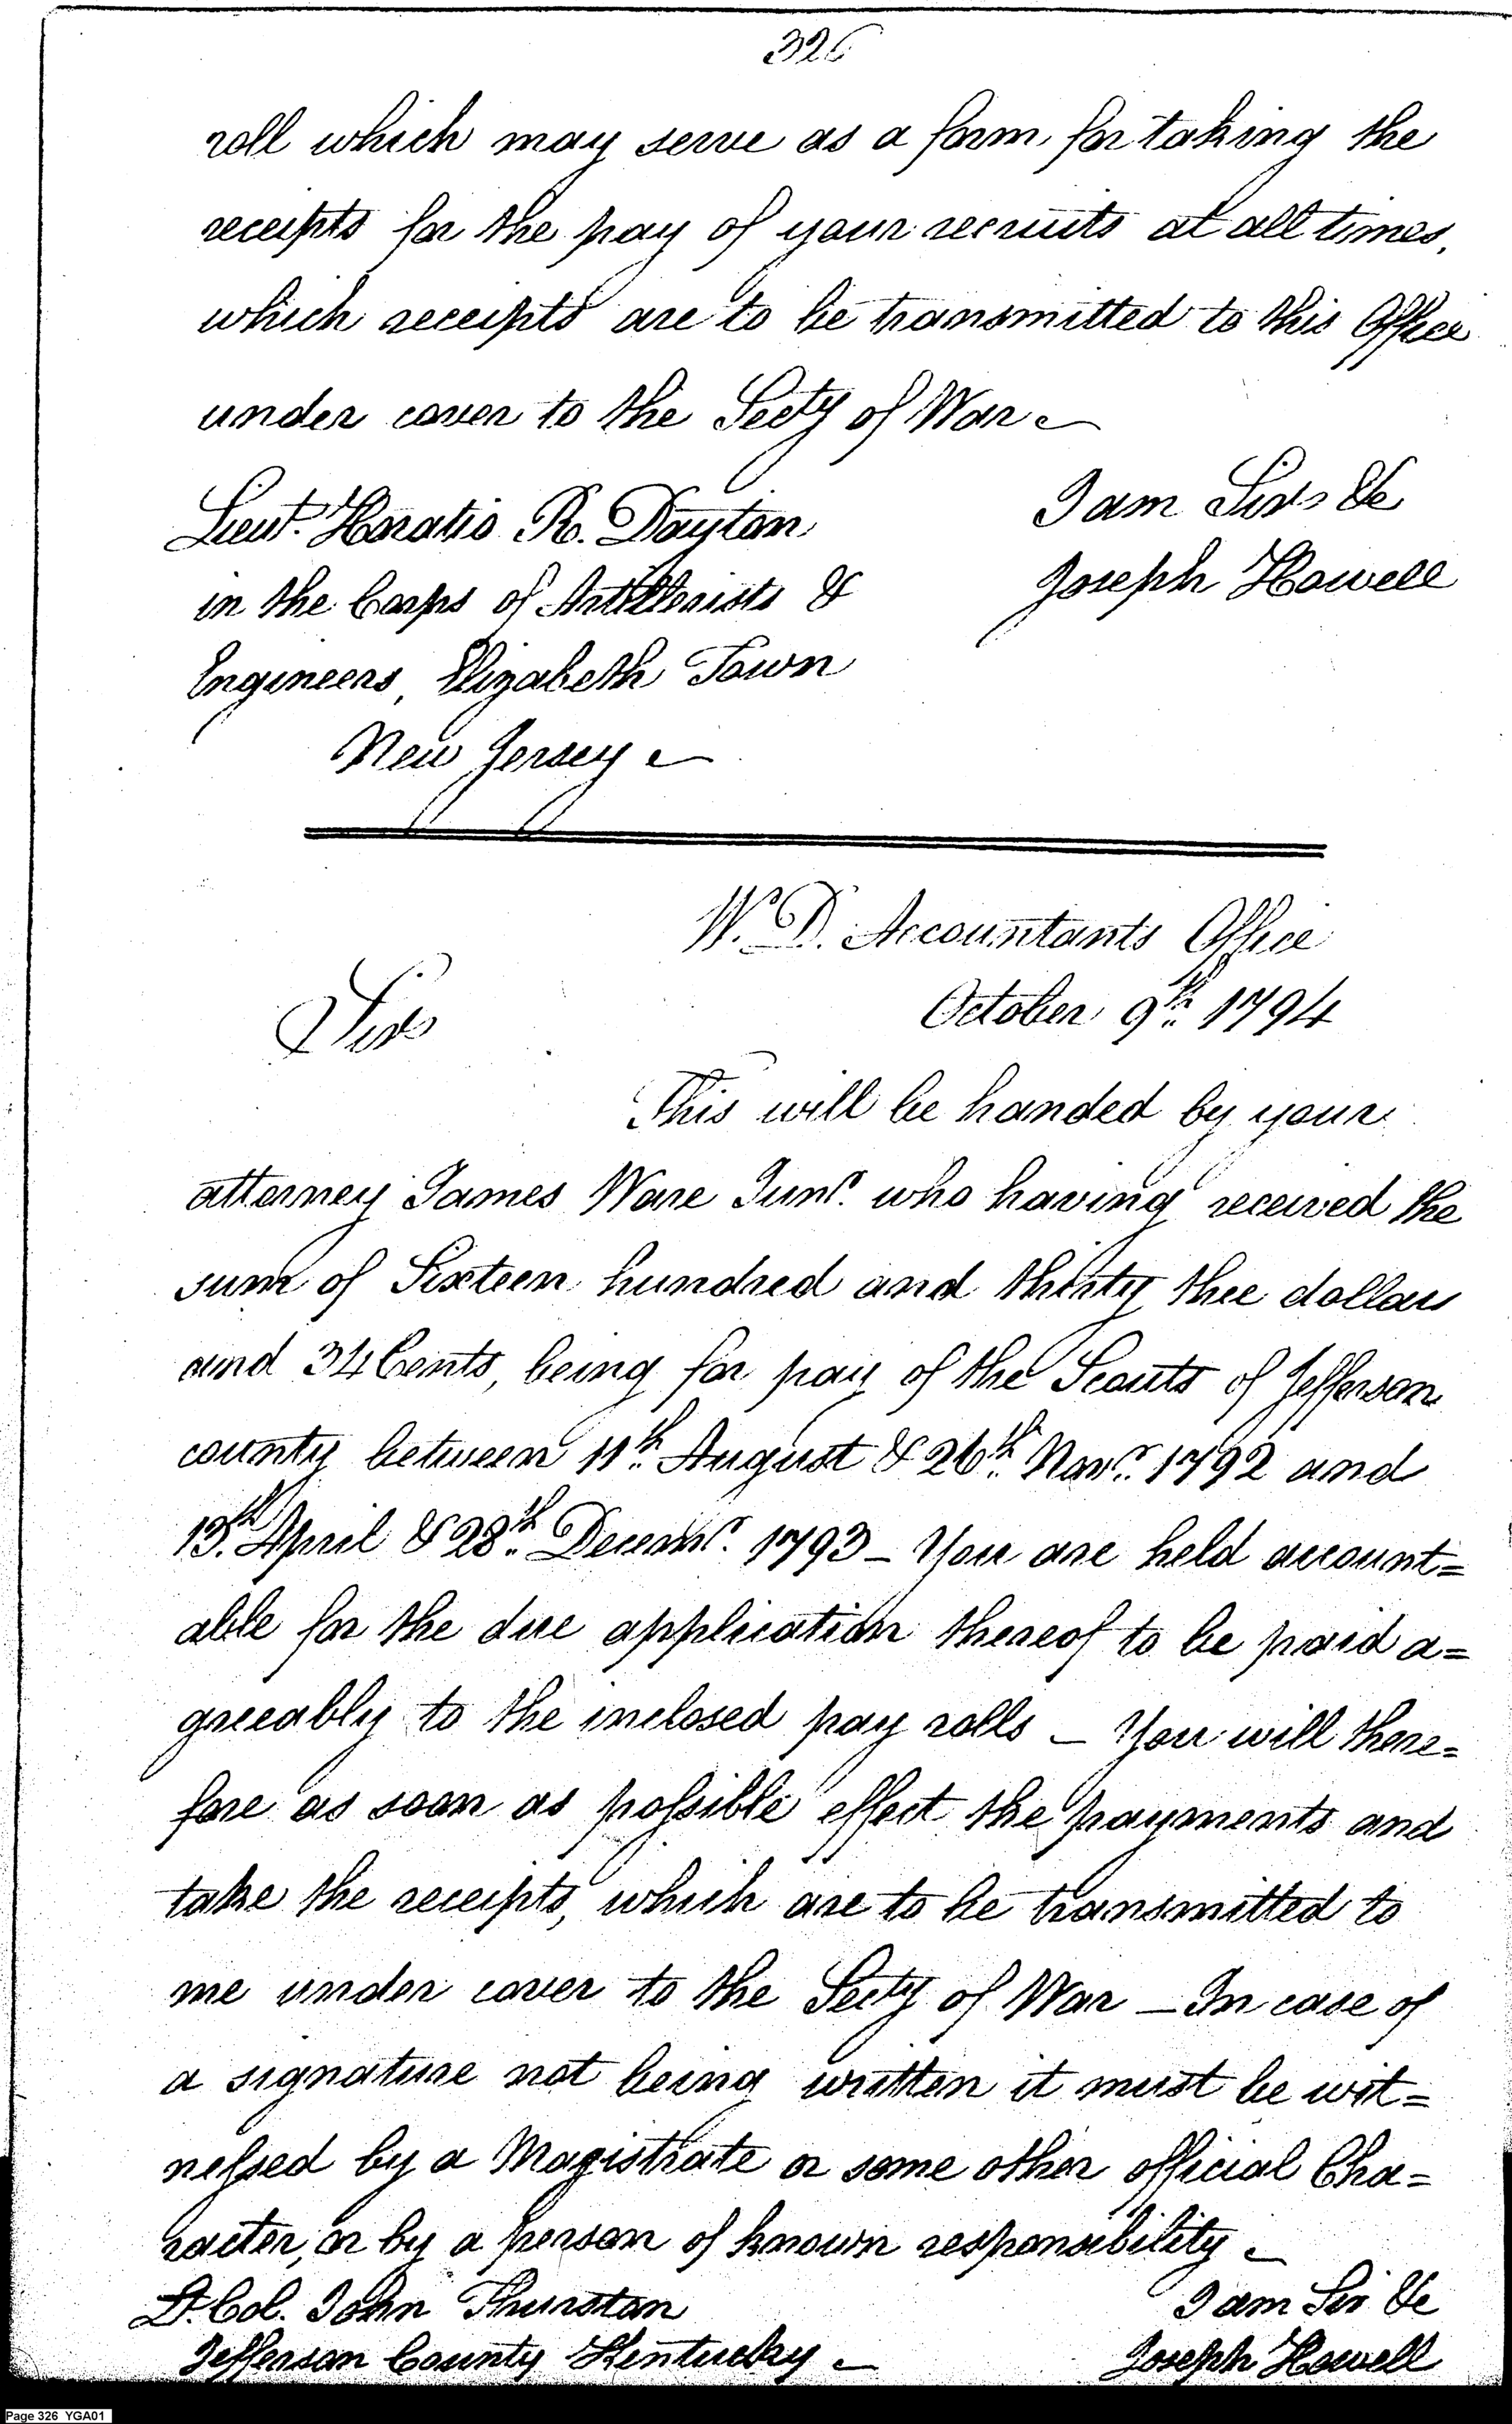 326
roll which may serve as a form for taking the
receipts for the pay of your recruits at all times,
which receipts are to be transmitted to this Office
under cover to the Secty of War
Lieut. Horatio R. Dayton
I am Sir &c
in the Corps of Artillerists &
Joseph Howell
Engineers, Elizabeth Town
New Jersey
W. D. Accountants Office
October 9th 1794
Sir
This will be handed by your
attorney James Ware Junr. who having received the
sum of Sixteen hundred and thirty thee dollars
and 34 Cents, being for pay of the Scouts of Jefferson
county between 11th August & 26th Novr. 1792 and
13th April & 28th Decemr. 1793 – You are held account=
able for the due application thereof to be paid a=
greeably to the inclosed pay rolls – You will there=
fore as soon as possible effect the payments and
take the receipts, which are to be transmitted to
me under cover to the Secty of War – In case of
a signature not being written it must be wit=
nessed by a Magistrate or some other official Cha=
racter, or by a person of known responsibility
Lt. Col. John Thurston
I am Sir &c
Jefferson County Kentucky
Joseph Howell
Page 326 YGA01